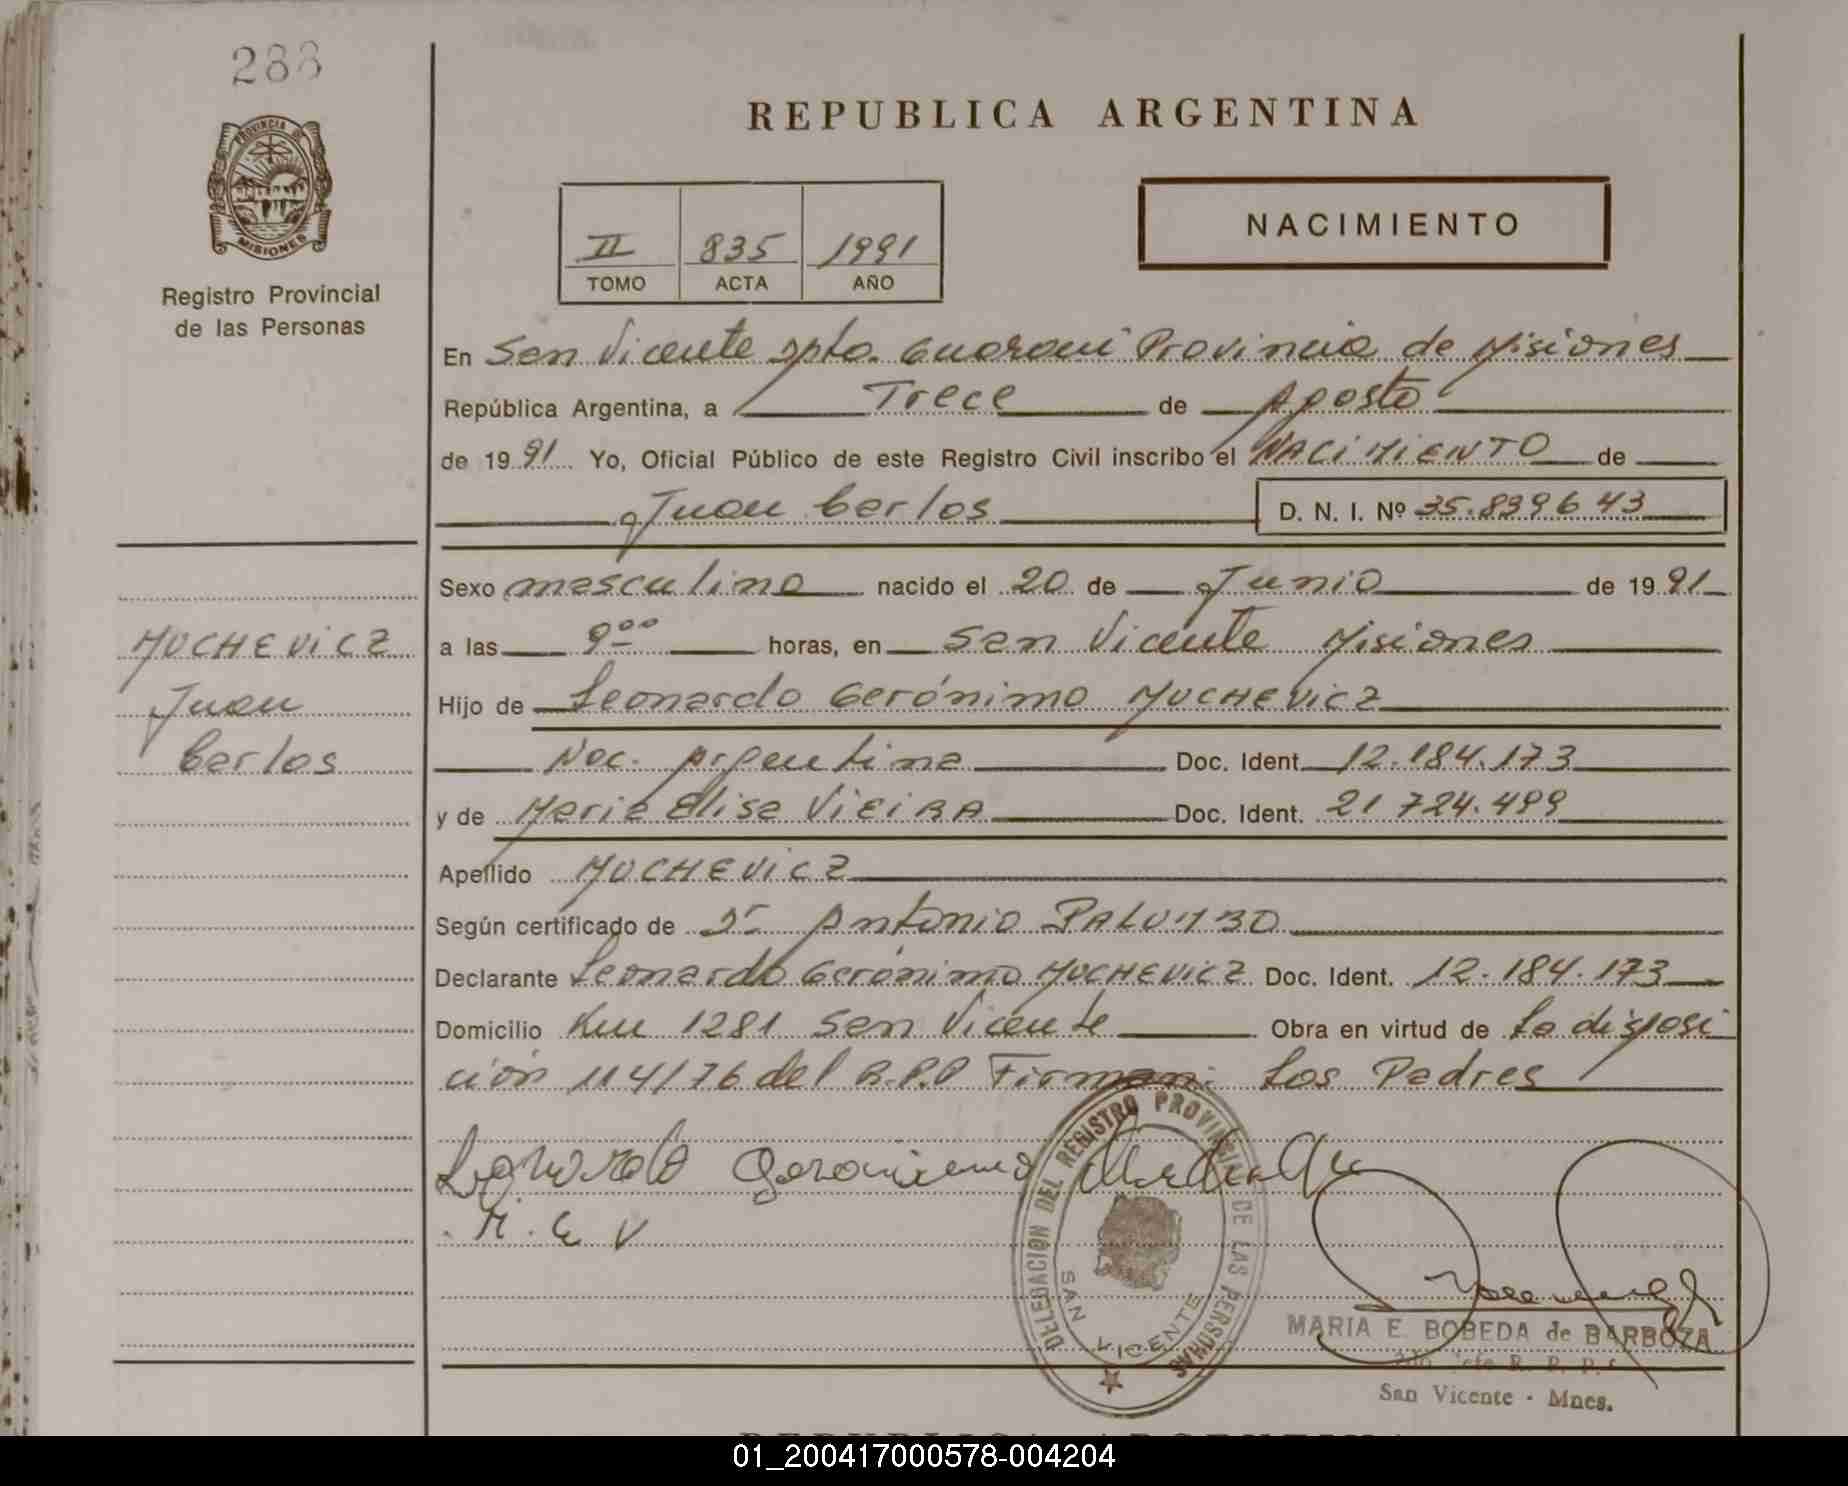 288
PROVINCIA DE
MISIONES
Registro Provincial
de las Personas
REPUBLICA ARGENTINA
NACIMIENTO
II 835 1991
TOMO ACTA AÑO
En San Vicente Dpto. Guaraní Provincia de Misiones
República Argentina, a Trece de Agosto
de 1991 Yo, Oficial Público de este Registro Civil inscribo el NACIMIENTO de
Juan Carlos D. N. I. Nº 35.839643
Sexo masculino nacido el 20 de Junio de 1991
a las 9⁰⁰ horas, en San Vicente Misiones
Hijo de Leonardo Gerónimo MUCHEVICZ
Nac. Argentina Doc. Ident. 12.184.173
y de Maria Elisa VIEIRA Doc. Ident. 21 724.499
Apellido MUCHEVICZ
Según certificado de Dr Antonio PALUMBO
Declarante Leonardo Gerónimo MUCHEVICZ Doc. Ident. 12.184.173
Domicilio Km 1281 San Vicente Obra en virtud de La disposi
ción 114/76 del R.P.P Firman: Los Padres
MUCHEVICZ
Juan
Carlos
Leonardo Geronimo
M. E V
DELEGACION DEL REGISTRO PROVINCIAL DE LAS PERSONAS
SAN VICENTE
MARIA E. BOBEDA de BARBOZA
2do Jefe R. P. P.
San Vicente - Mnes.
REPUBLICA ARGENTINA
01_200417000578-004204